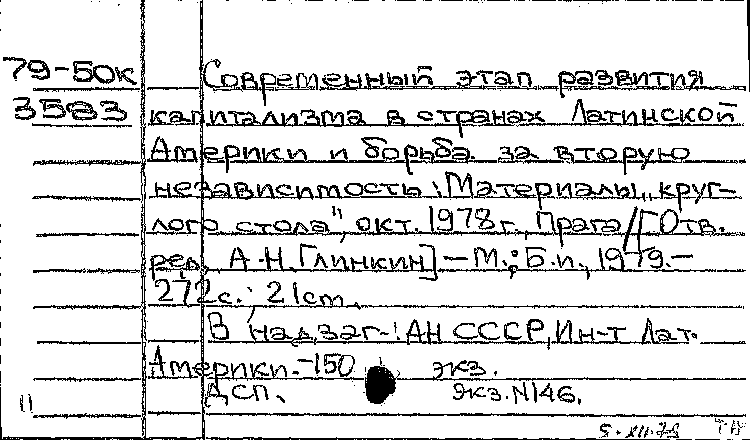 79-50к
3583
Современный этап развития
капитализма в странах Латинской
Америки и борьба за вторую
независимость: Материалы „круг-
лого стола", окт. 1978 г., Прага/[Отв.
ред. А.Н. Глинкин].— М.: Б.и., 1979.—
272с.; 21cm.
В надзаг.: АН СССР, Ин-т Лат.
Америки.-150 экз.
ДСП. экз. N146.
11